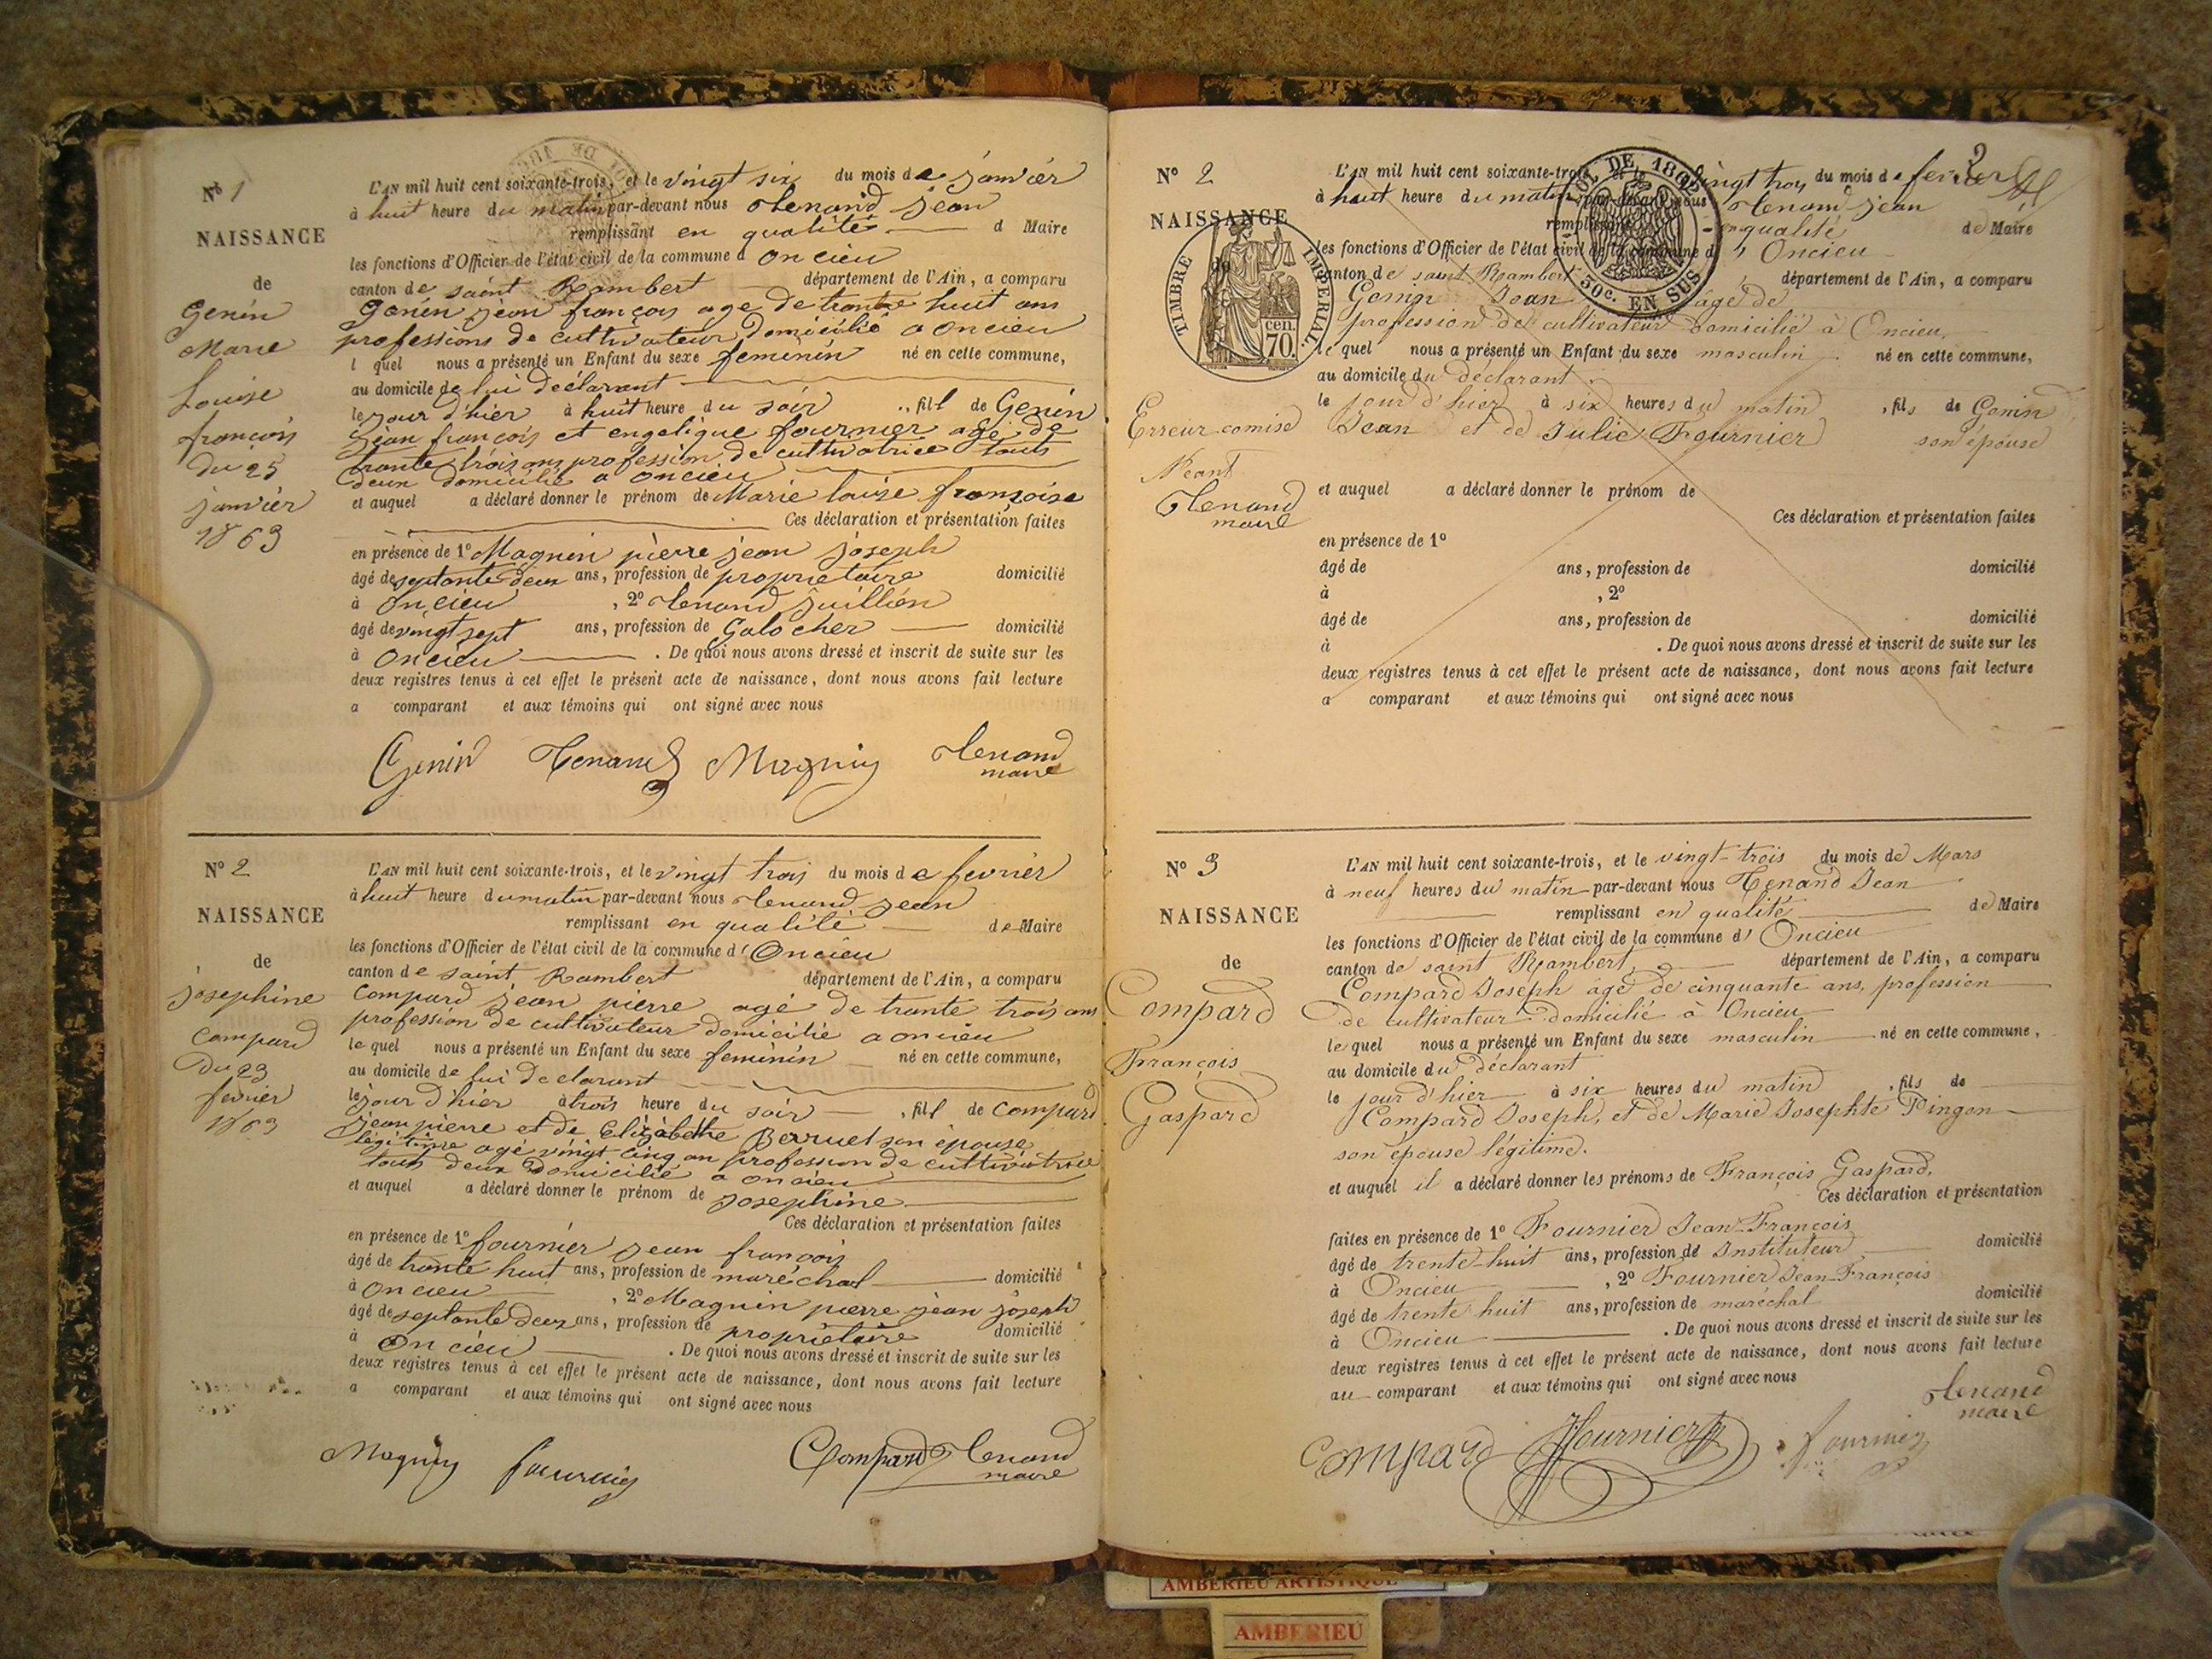 Nº 1
NAISSANCE
de
Genin
Marie
Louise
francois
Du 25
janvier
1863
L'AN mil huit cent soixante-trois, et le vingt six du mois de janvier
à huit heure du matin par-devant nous Tenand jean
remplissant en qualité d Maire
les fonctions d'Officier de l'état civil de la commune d Oncieu
canton de saint Rambert département de l'Ain, a comparu
Genin jean françois age de trante huit ans
professions de cultivateur domicilié a oncieu
l quel nous a présenté un Enfant du sexe feminin né en cette commune,
au domicile de lui déclarant
le jour d'hier à huit heure du soir , fill de Genin
jean françois et engelique fournier age de
trante trois ans profession de cultivatrice touts
deux domicilié a oncieu
et auquel a déclaré donner le prénom de Marie laise françoise
Ces déclaration et présentation faites
en présence de 1º Magnin pierre jean joseph
âgé de septante deux ans, profession de propriétaire domicilié
à oncieu , 2º Tenand juillien
âgé de vingt sept ans, profession de Galocher domicilié
à oncieu . De quoi nous avons dressé et inscrit de suite sur les
deux registres tenus à cet effet le présent acte de naissance, dont nous avons fait lecture
a comparant et aux témoins qui ont signé avec nous
Genin Tenand Magnin Tenand
maire
Nº 2
NAISSANCE
de
josephine
compard
Du 23
fevrier
1863
L'AN mil huit cent soixante-trois, et le vingt trois du mois de fevrier
à huit heure du matin par-devant nous Tenand jean
remplissant en qualité de Maire
les fonctions d'Officier de l'état civil de la commune d' Oncieu
canton de saint Rambert département de l'Ain, a comparu
compard jean pierre agé de trante trois ans
profession de cultivateur domicilié a oncieu
le quel nous a présenté un Enfant du sexe feminin né en cette commune,
au domicile de lui declarant
le jour d'hier à trois heure du soir , fill de compard
jean pierre et de Elizabethe Berruet son épouse
légitime agé vingt cinq an profession de cultivatrice
touts deux domicilié a oncieu
et auquel a déclaré donner le prénom de josephine
Ces déclaration et présentation faites
en présence de 1º fournier jean françois
âgé de trante huit ans, profession de maréchal domicilié
à oncieu , 2º Magnin pierre jean joseph
âgé de septante deux ans, profession de propriétaire domicilié
à oncieu . De quoi nous avons dressé et inscrit de suite sur les
deux registres tenus à cet effet le présent acte de naissance, dont nous avons fait lecture
a comparant et aux témoins qui ont signé avec nous
Magnin fournier Compard Tenand
maire
2
Nº 2
NAISSANCE
de
TIMBRE IMPERIAL
70 cen.
LOI DE 1862
50c. EN SUS
Erreur comise
Neant
Tenand
maire
L'AN mil huit cent soixante-trois, et le vingt trois du mois de fevrier
à huit heure du matin par-devant nous Tenand jean
remplissant en qualité de Maire
les fonctions d'Officier de l'état civil de la commune d' Oncieu
canton de saint Rambert département de l'Ain, a comparu
Genin Jean âgé de
profession de cultivateur domicilié à Oncieu
le quel nous a présenté un Enfant du sexe masculin né en cette commune,
au domicile du déclarant
le jour d'hier à six heures du matin , fils de Genin
Jean et de Julie Fournier son épouse
et auquel a déclaré donner le prénom de
Ces déclaration et présentation faites
en présence de 1º
âgé de ans, profession de domicilié
à , 2º
âgé de ans, profession de domicilié
à . De quoi nous avons dressé et inscrit de suite sur les
deux registres tenus à cet effet le présent acte de naissance, dont nous avons fait lecture
a comparant et aux témoins qui ont signé avec nous
Nº 3
NAISSANCE
de
Compard
François
Gaspard
L'AN mil huit cent soixante-trois, et le vingt-trois du mois de Mars
à neuf heures du matin par-devant nous Tenand Jean
remplissant en qualité de Maire
les fonctions d'Officier de l'état civil de la commune d' Oncieu
canton de saint Rambert département de l'Ain, a comparu
Compard Joseph agé de cinquante ans, profession
de cultivateur domicilié à Oncieu
le quel nous a présenté un Enfant du sexe masculin né en cette commune,
au domicile du déclarant
le jour d'hier à six heures du matin , fils de
Compard Joseph, et de Marie Josephte Pingon
son épouse légitime.
et auquel il a déclaré donner les prénoms de François Gaspard.
Ces déclaration et présentation
faites en présence de 1º Fournier Jean-François
âgé de trente-huit ans, profession de Instituteur domicilié
à Oncieu , 2º Fournier Jean-François
âgé de trente huit ans, profession de maréchal domicilié
à Oncieu . De quoi nous avons dressé et inscrit de suite sur les
deux registres tenus à cet effet le présent acte de naissance, dont nous avons fait lecture
au comparant et aux témoins qui ont signé avec nous
Tenand
maire
Compard Fournier fournier
AMBERIEU ARTISTIQUE
AMBERIEU